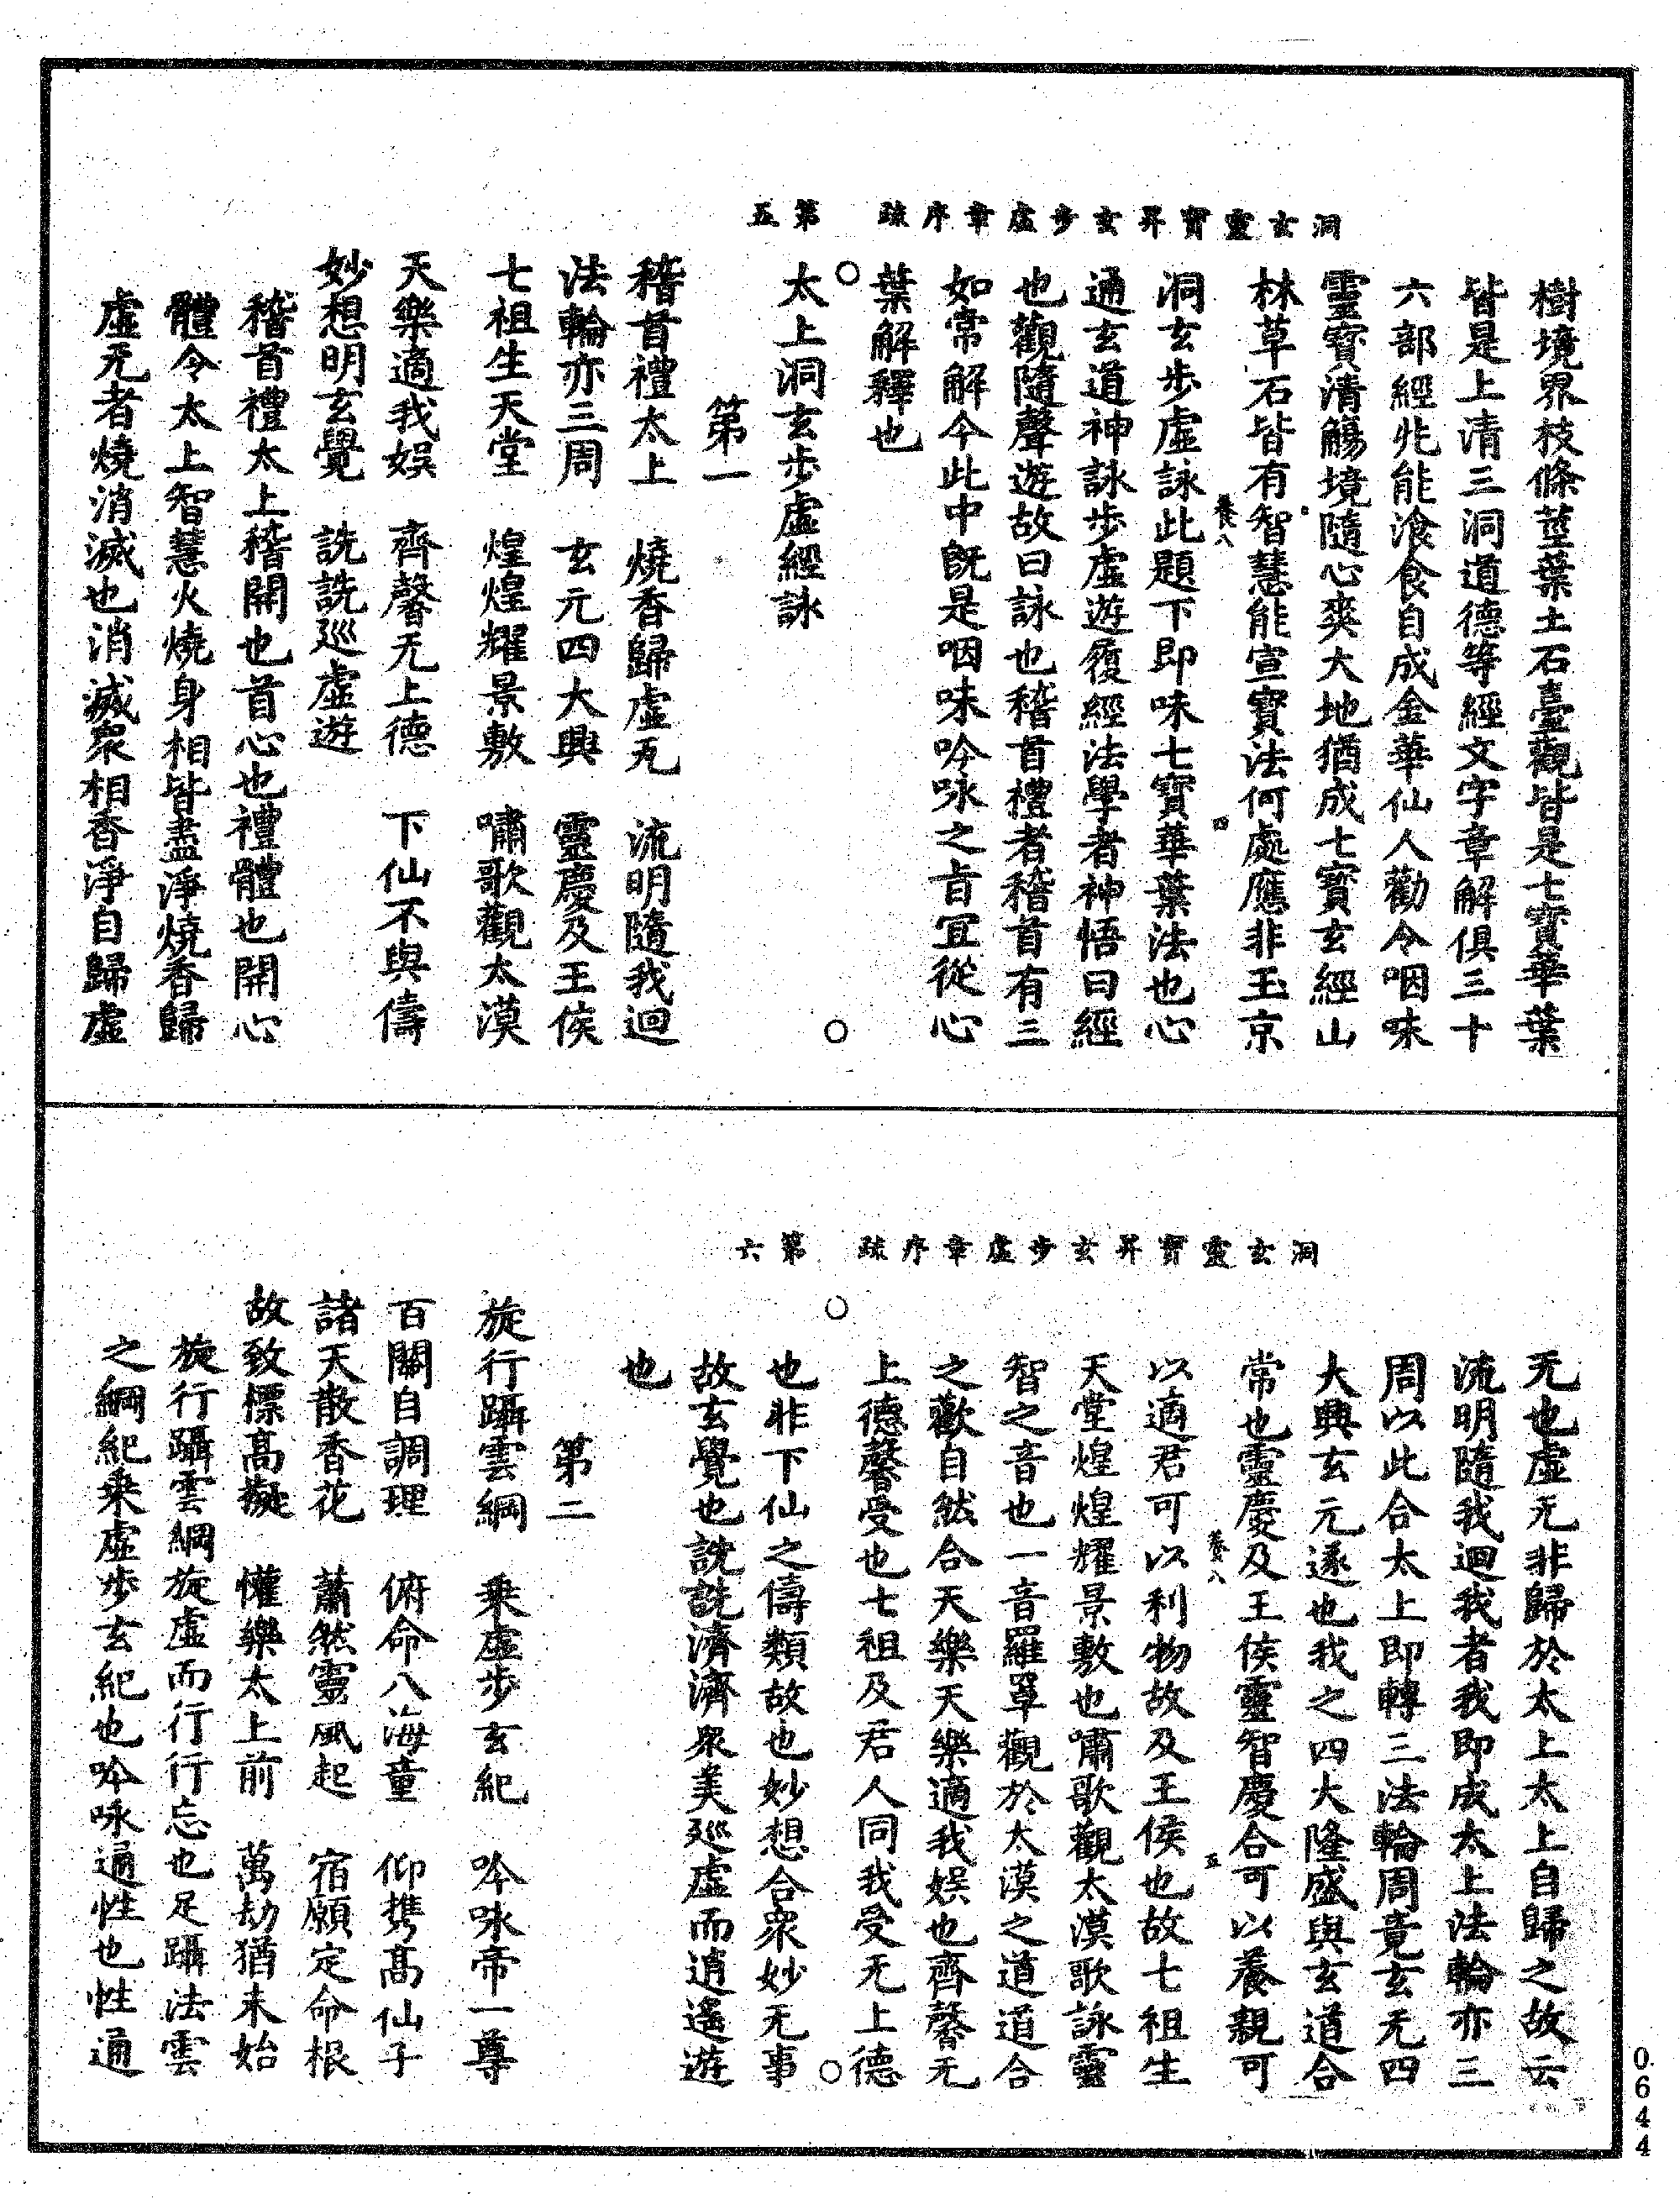 洞玄靈寶昇玄步虛章序疏　第五
樹境界枝條莖葉土石臺觀皆是七寶華葉
皆是上清三洞道德等經文字章解俱三十
六部經非能飡食自成金華仙人勸令咽味
靈寶清觴境隨心爽大地猶成七寶玄經山
林草石皆有智慧能宣寶法何處應非玉京
養八　四
洞玄步虛詠此題下即味七寶華葉法也心
通玄道神詠步虛遊履經法學者神悟曰經
也觀隨聲遊故曰詠也稽首禮者稽首有三
如常解今此中既是咽味吟咏之旨宜從心
葉解釋也
太上洞玄步虛經詠
第一
稽首禮太上　燒香歸虛无　流明隨我迴
法輪亦三周　玄元四大興　靈慶及王侯
七祖生天堂　煌煌耀景敷　嘯歌觀太漠
天樂適我娛　齊馨无上德　下仙不與儔
妙想明玄覺　詵詵巡虛遊
稽首禮太上稽開也首心也禮體也開心
體令太上智慧火燒身相皆盡淨燒香歸
虛无者燒消滅也消滅衆相香淨自歸虛
洞玄靈寶昇玄步虛章序疏　第六
无也虛无非歸於太上太上自歸之故云
流明隨我迴我者我即成太上法輪亦三
周以此合太上即轉三法輪周竟玄无四
大興玄元遂也我之四大隆盛與玄道合
常也靈慶及王侯靈智慶合可以養親可
養八　五
以適君可以利物故及王侯也故七祖生
天堂煌煌耀景敷也嘯歌觀太漠歌詠靈
智之音也一音羅罩觀於太漠之道道合
之歡自然合天樂天樂適我娛也齊馨无
上德馨受也七祖及君人同我受无上德
也非下仙之儔類故也妙想合衆妙无事
故玄覺也詵詵濟濟衆美巡虛而逍遙遊
也
第二
旋行躡雲綱　乘虛步玄紀　吟咏帝一尊
百關自調理　俯命八海童　仰携高仙子
諸天散香花　蕭然靈風起　宿願定命根
故致標高擬　懽樂太上前　萬劫猶未始
旋行躡雲綱旋虛而行行忘也足躡法雲
之綱紀乘虛步玄紀也吟咏通性也性通
0644